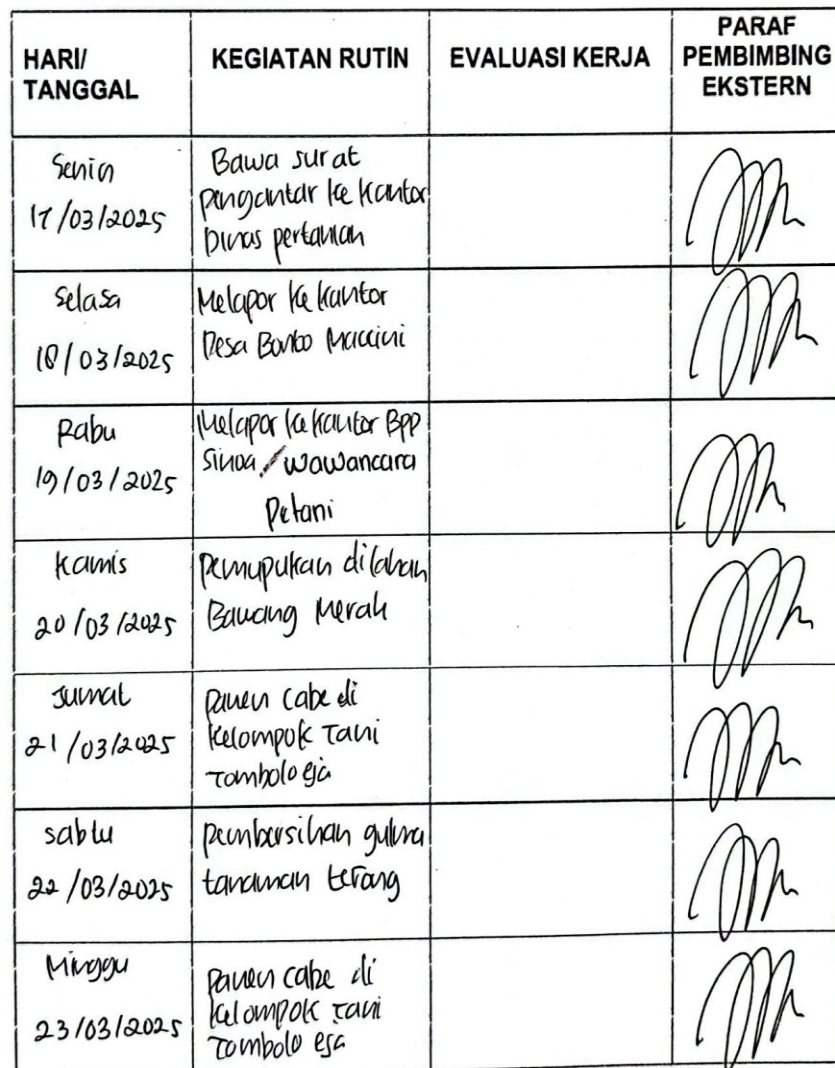 HARI/
TANGGAL
KEGIATAN RUTIN
EVALUASI KERJA
PARAF
PEMBIMBING
EKSTERN
Senin
17/03/2025
Bawa surat
pengantar ke kantor
Dinas pertanian
Selasa
18/03/2025
Melapor ke kantor
Desa Bonto Maccini
Rabu
19/03/2025
Melapor ke kantor BPP
Sinoa / wawancara
Petani
Kamis
20/03/2025
pemupukan dilahan
Bawang Merah
Jumat
21/03/2025
panen cabe di
Kelompok Tani
Tombolo eja
sabtu
22/03/2025
pembersihan gulma
tanaman terong
Minggu
23/03/2025
panen cabe di
Kelompok Tani
Tombolo esa